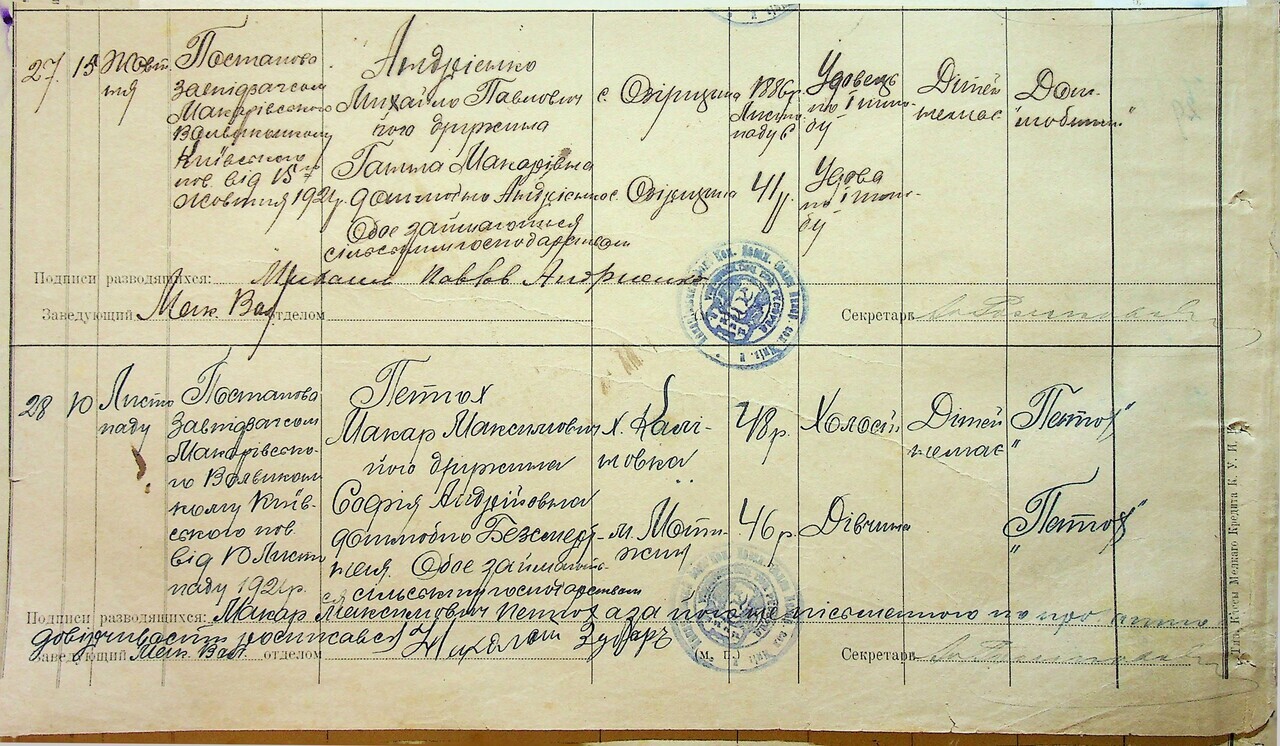 27 15 Жовт
ня
Постанова
Завпідзагсом
Макарівського
Волвиконкому
Київського
пов. від 15го
Жовтня 1921р.
Андрієнко
Михайло Павлович
його дружина
Ганна Макарівна
дошлюбно Андрієнко
Обоє займаються
сільським господарством
с. Озірщина
с. Озірщина
1886р.
Листо
паду 6
41р.
Удовець
по І шлю-
бу
Удова
по І шлю-
бу
Дітей
немає
Подписи разводящихся: Михаил Павлов Андриенко
Заведующий отделом
Секретарь
28 10 Листо
паду
Постанова
Завпідзагсом
Макарівсько-
го Волвикон-
кому Київ-
ського пов.
від 10 Листо
паду 1921р.
Петтох
Макар Максимович
його дружина
Софія Андрійовна
дошлюбно Безсмерт-
ная. Обоє займають-
ся сільським господарством
х. Калі-
новка
м. Моти-
жин
48р.
46р.
Холостій
Дівчина
Дітей
немає
"Петтох"
"Петтох"
Подписи разводящихся: Макар Максимович Петтох а за
росписався
Заведующий отделом
(М. П.)
Секретарь
Тип. Кассы Мелкаго Кредита К. У.